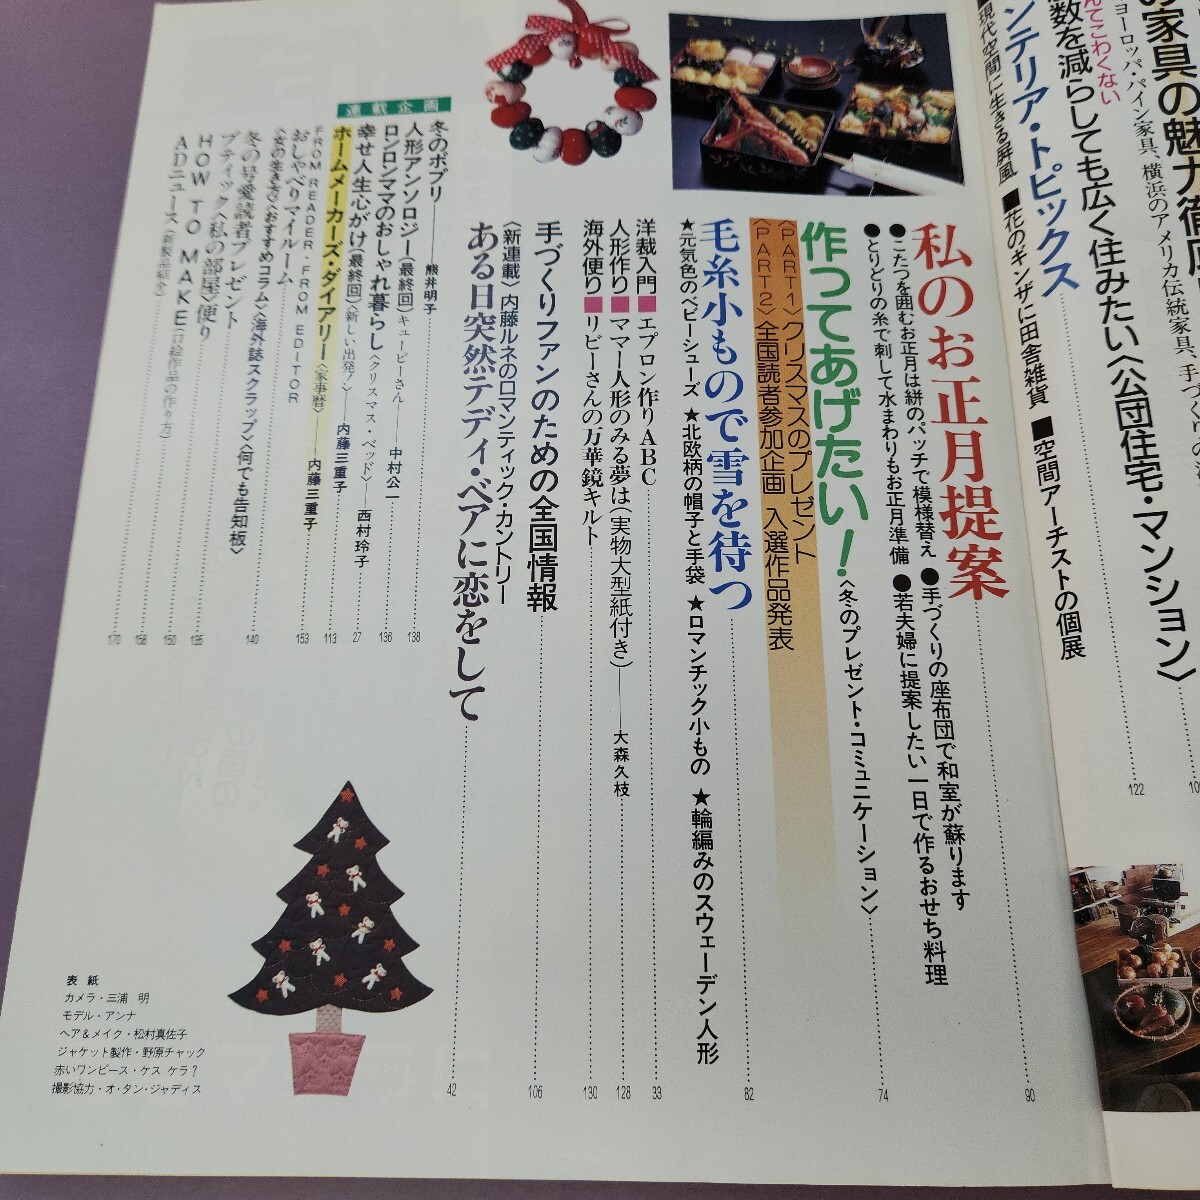 の家具の魅力徹底
ヨーロッパ・パイン家具、横浜のアメリカ伝統家具、手づくりの
んてこわくない
数を減らしても広く住みたい〈公団住宅・マンション〉
122
ンテリア・トピックス
■現代空間に生きる屏風 ■花のギンザに田舎雑貨 ■空間アーチストの個展
私のお正月提案
90
●こたつを囲むお正月は絣のパッチで模様替え ●手づくりの座布団で和室が蘇ります
●とりどりの糸で刺して水まわりもお正月準備 ●若夫婦に提案したい一日で作るおせち料理
作ってあげたい！
〈冬のプレゼント・コミュニケーション〉
74
〈PART1〉クリスマスのプレゼント
〈PART2〉全国読者参加企画 入選作品発表
毛糸小もので雪を待つ
82
★元気色のベビーシューズ ★北欧柄の帽子と手袋 ★ロマンチック小もの ★輪編みのスウェーデン人形
洋裁入門■エプロン作りABC
33
人形作り■ママー人形のみる夢は(実物大型紙付き)——大森久枝
128
海外便り■リビーさんの万華鏡キルト
130
手づくりファンのための全国情報
106
〈新連載〉内藤ルネのロマンティック・カントリー
ある日突然テディ・ベアに恋をして
42
連載企画
冬のポプリ——熊井明子
138
人形アンソロジー(最終回)キューピーさん——中村公一
136
ロンロンママのおしゃれ暮らし〈クリスマス・ベッド〉——西村玲子
27
幸せ人生心がけ(最終回)〈新しい出発！〉——内藤三重子
113
ホームメーカーズ・ダイアリー〈家事暦〉——内藤三重子
153
FROM READER・FROM EDITOR
おしゃべりマイルーム
〈女の生き方〉〈おすすめコラム〉〈海外誌スクラップ〉〈何でも告知板〉
140
冬の号愛読者プレゼント
ブティック〈私の部屋〉便り
135
HOW TO MAKE(口絵作品の作り方)
150
158
ADニュース〈新製品紹介〉
170
表 紙
カメラ・三浦 明
モデル・アンナ
ヘア＆メイク・松村真佐子
ジャケット製作・野原チャック
赤いワンピース・ケス ケラ？
撮影協力・オ・タン・ジャディス